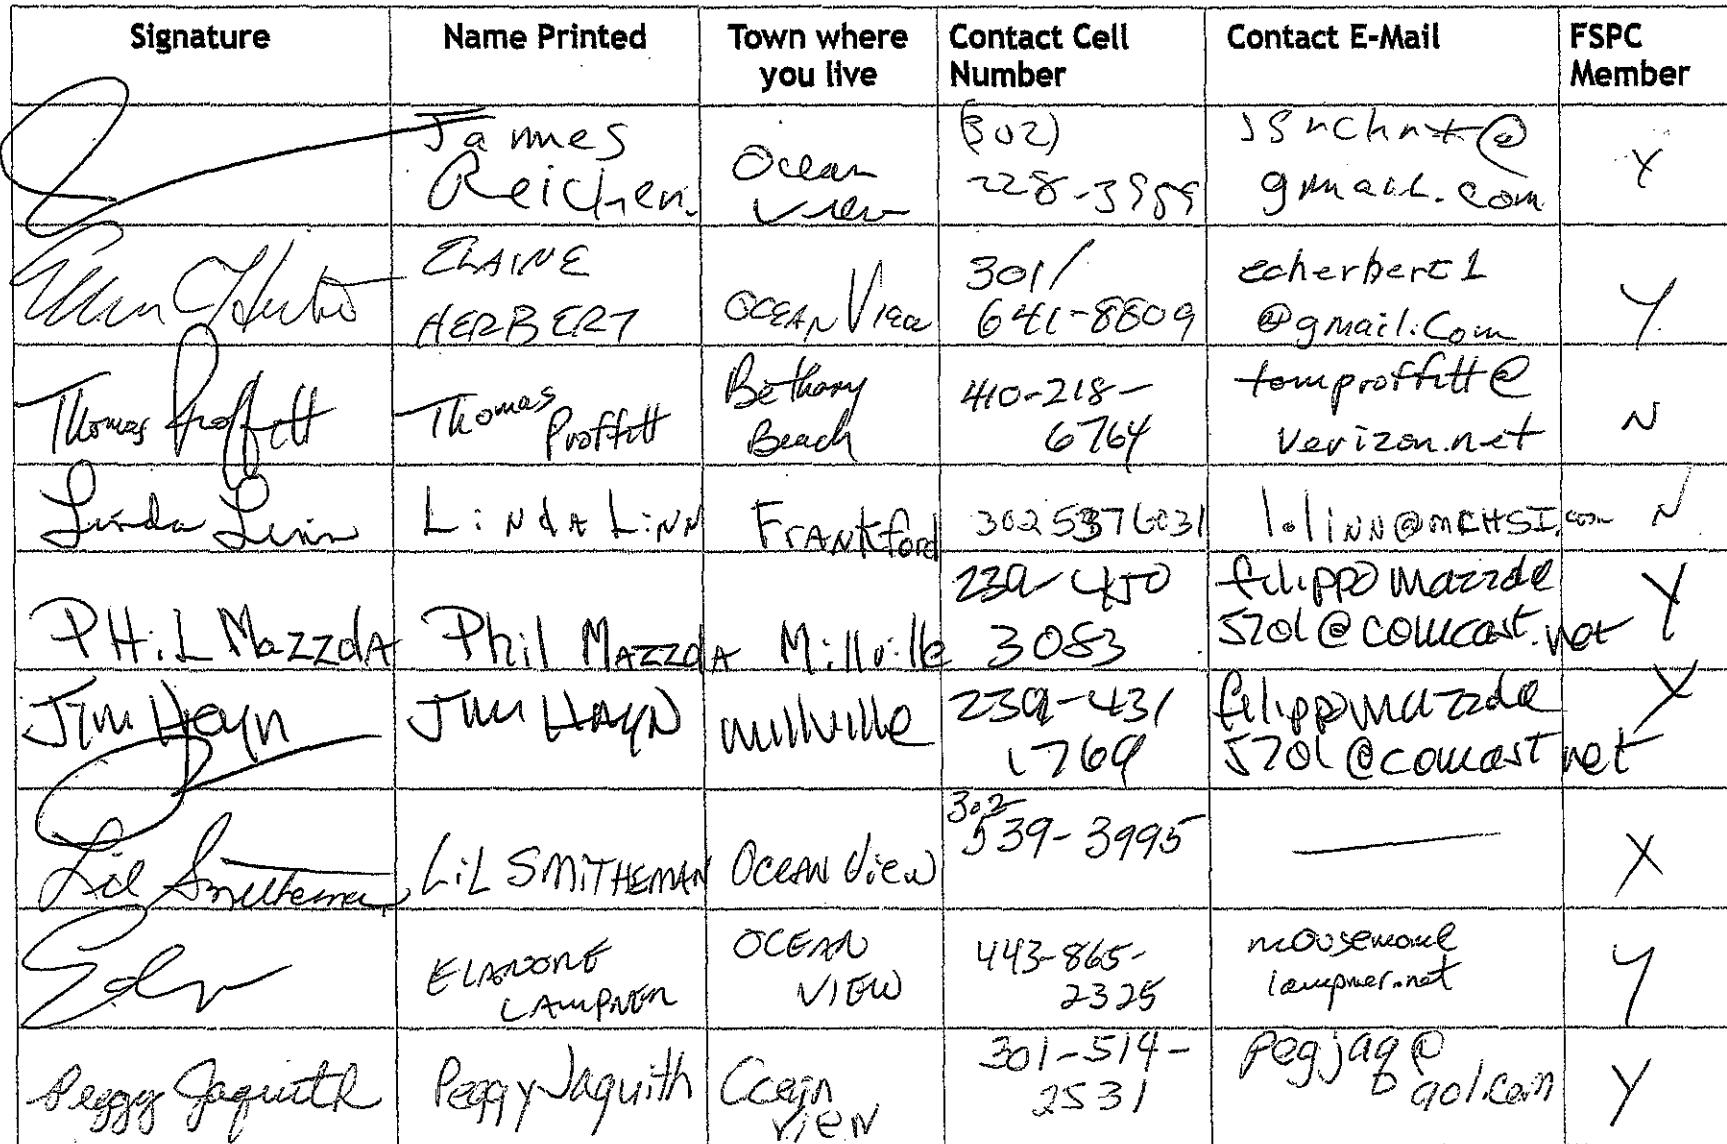 Signature Name Printed Town where you live Contact Cell Number Contact E-Mail FSPC Member
James Reichen. Ocean View (302) 228-3989 @gmail.com Y
ELAINE HERBERT OCEAN View 301/641-8809 echerbert1@gmail.com Y
Thomas Proffitt Thomas Proffitt Bethany Beach 410-218-6764 tomproffitt@verizon.net N
Linda Linn LiNdA LiNN FrANKford 3025376031 l.liNN@mCHSI.com N
PHiL MazzdA Phil MAZZdA Millville 239-450 3083 filippomazzda5701@comcast.net Y
Jim Hayn Jim HAYN millville 239-431 1769 filippomazzda5701@comcast net Y
Lil Smitheman LiL SMITHEMAN OCEAN View 302 539-3995 — X
LAMPNER OCEAN VIEW 443-865-2325 lampner.net Y
Peggy Jaquith Peggy Jaquith Ocean View 301-514-2531 pegjaq@aol.com Y